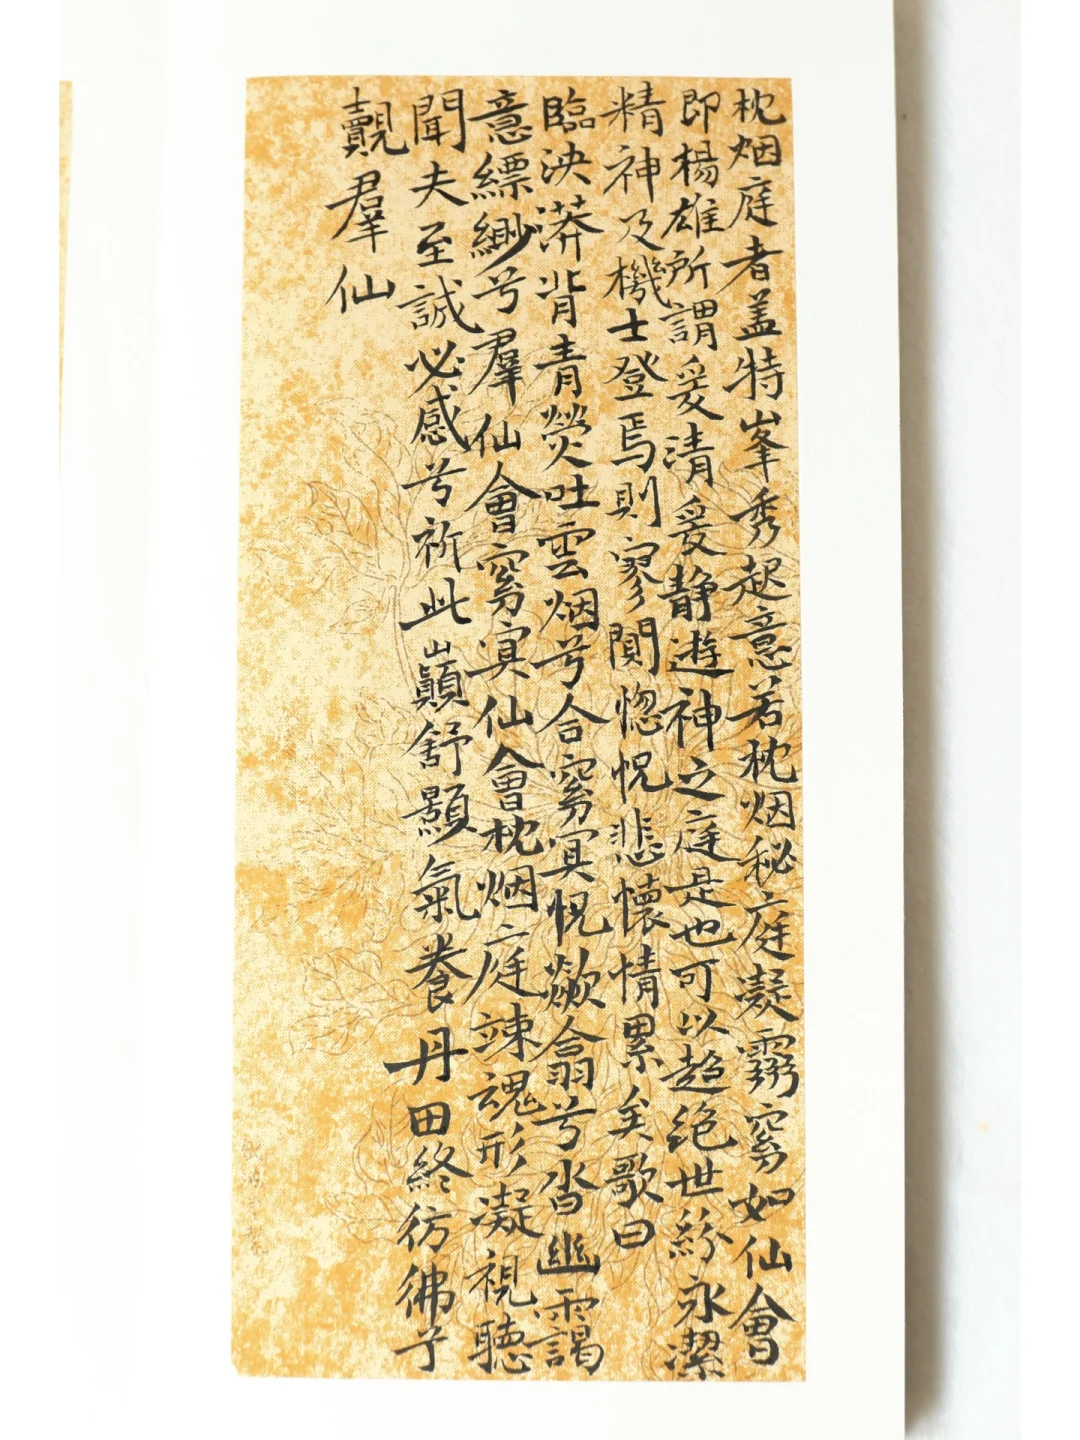 枕烟庭者盖特峯秀起意若枕烟秘庭凝霧窈如仙會
即楊雄所謂爰清爰静遊神之庭是也可以超绝世紛永潔
精神及機士登焉則寥閴惚怳悲懷情累矣歌曰
臨泱漭背青熒吐雲烟兮合窈冥怳歘翕兮沓幽靄
意縹緲兮羣仙會窈冥仙會枕烟庭竦魂形凝視聽
聞夫至誠必感兮祈此巔舒顥氣養丹田終彷彿兮
覿羣仙